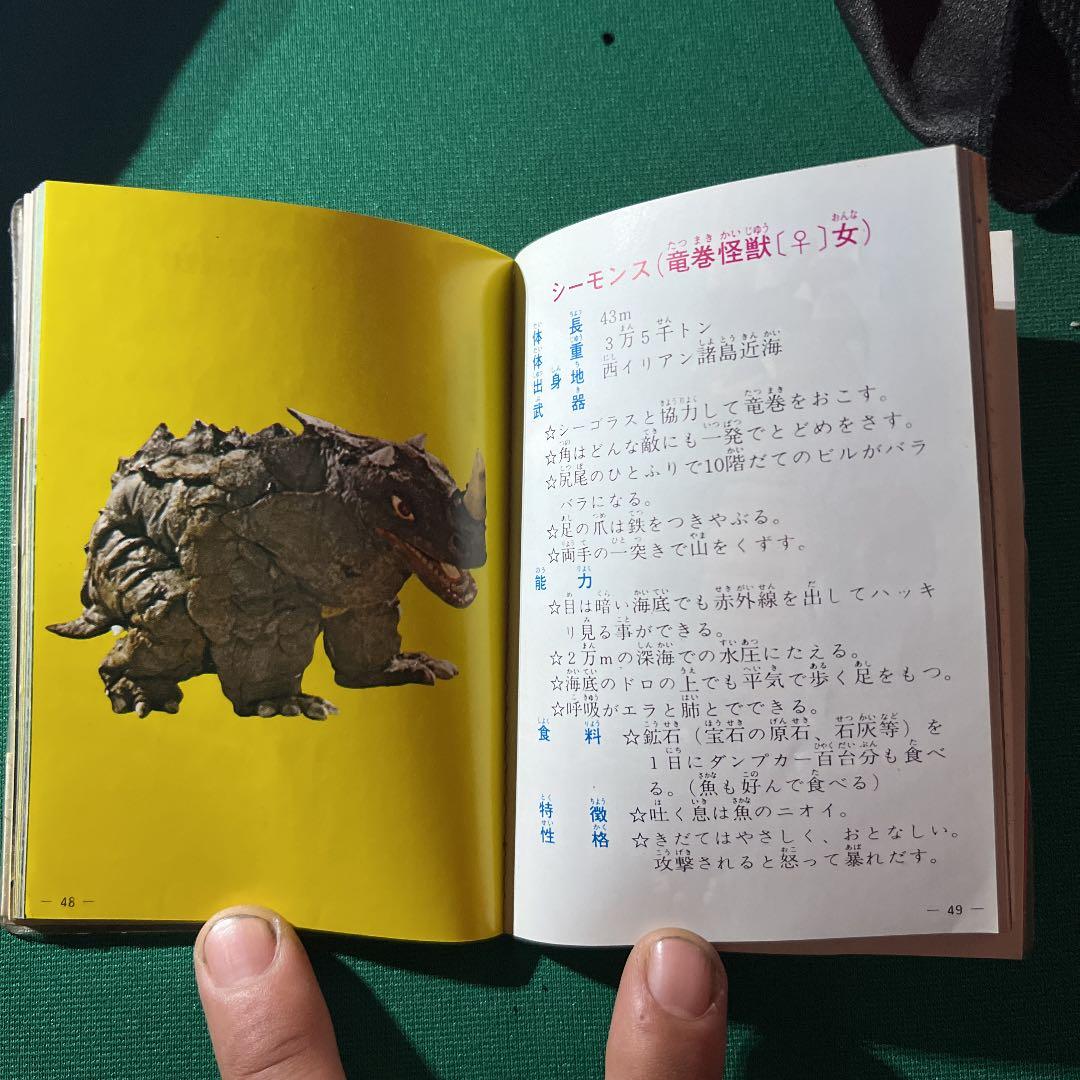 シーモンス(竜巻怪獣[♀]女)
体長 43m
体重 3万5千トン
出身地 西イリアン諸島近海
武器
☆シーゴラスと協力して竜巻をおこす。
☆角はどんな敵にも一発でとどめをさす。
☆尻尾のひとふりで10階だてのビルがバラ
バラになる。
☆足の爪は鉄をつきやぶる。
☆両手の一突きで山をくずす。
能力
☆目は暗い海底でも赤外線を出してハッキ
リ見る事ができる。
☆2万mの深海での水圧にたえる。
☆海底のドロの上でも平気で歩く足をもつ。
☆呼吸がエラと肺とでできる。
食料 ☆鉱石(宝石の原石、石灰等)を
1日にダンプカー百台分も食べ
る。(魚も好んで食べる)
特徴 ☆吐く息は魚のニオイ。
性格 ☆きだてはやさしく、おとなしい。
攻撃されると怒って暴れだす。
— 48 —
— 49 —